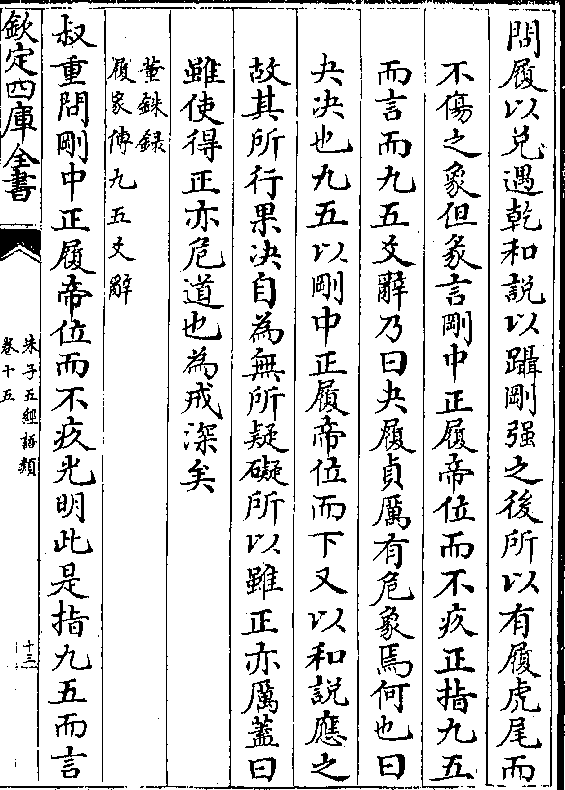 問履以兌遇乾和說以躡剛强之後所以有履虎尾而
不傷之象但彖言剛中正履帝位而不疚正指九五
而言而九五爻辭乃曰夬履貞厲有危象焉何也曰
夬决也九五以剛中正履帝位而下又以和說應之
故其所行果决自為無所疑礙所以雖正亦厲蓋曰
雖使得正亦危道也為戒深矣
董銖録
履彖傳九五爻辭
叔重問剛中正履帝位而不疚光明此是指九五而言
欽定四庫全書
朱子五經語類
卷十五
十三